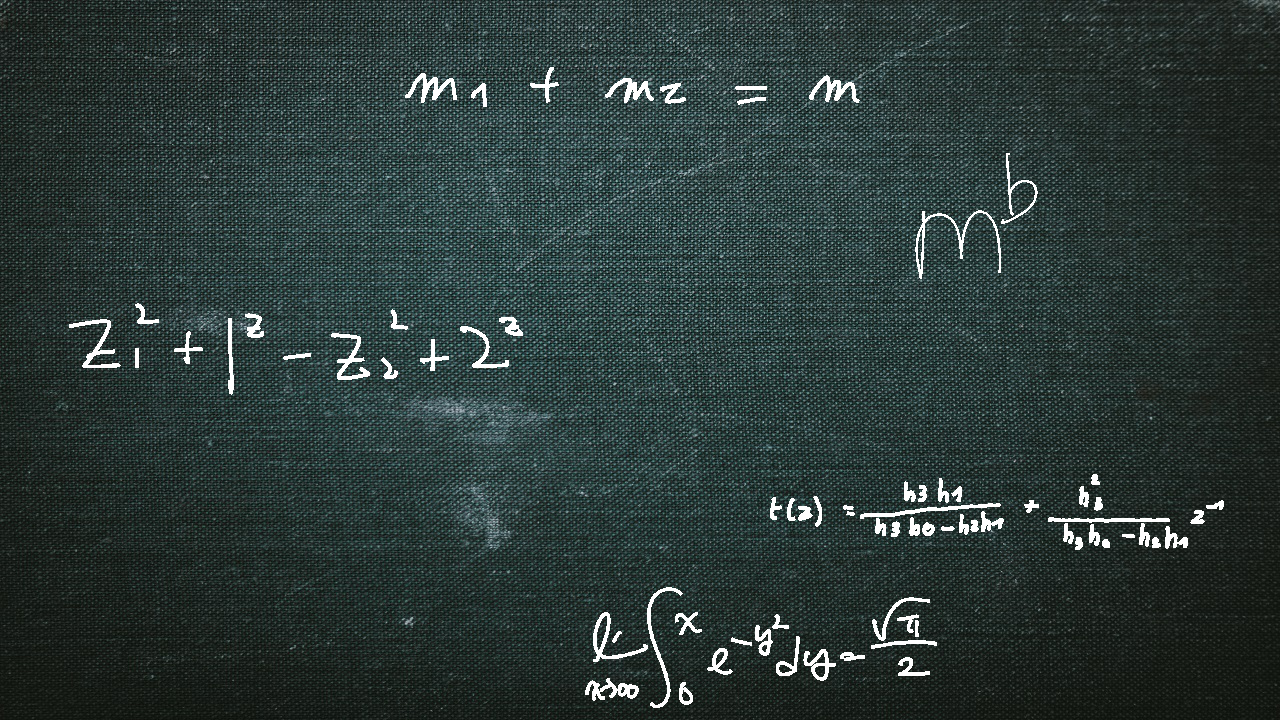 m1 + m2 = m
m^b
z_1^2 + 1^z - z_2^2 + 2^z
t(z) = \frac{h3 h1}{h3 h0 - h2h1} + \frac{h_3^2}{h_3 h_0 - h_2 h1} z^{-1}
\lim_{x→∞} ∫_0^x e^{-y^2} dy = \frac{√π}{2}